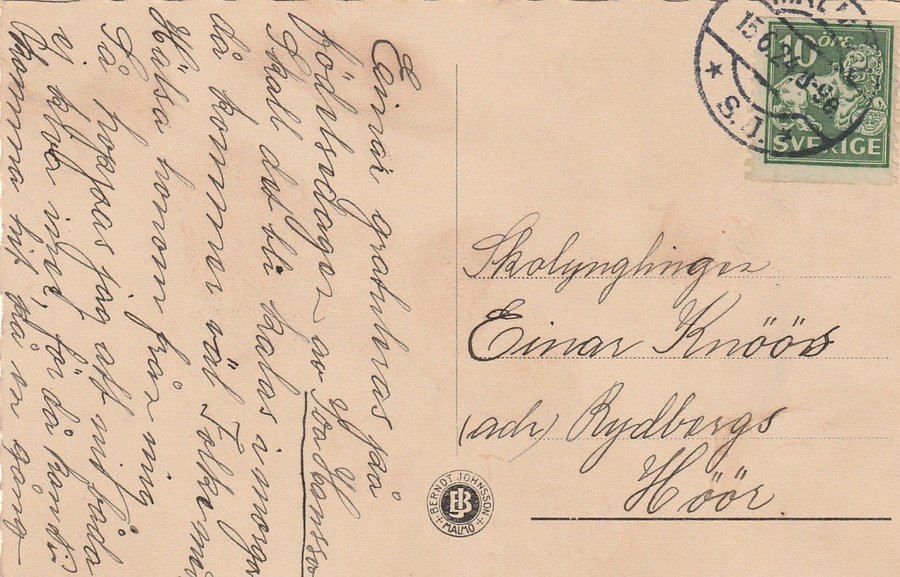 Einar gratuleras på
födelsedagen av Iva Hansson
Skall det bli kalas i morgon
då kommer väl Folke med
Hälsa honom från mig
Så hoppas jag att ni båda
ej kiva inget, för då kan ni
komma hit på en gång
10 ÖRE
SVERIGE
15.6.
Skolynglingen
Einar Knöös
(adr) Rydbergs
Höör
BERNDT JOHNSSON
BJ
MALMÖ